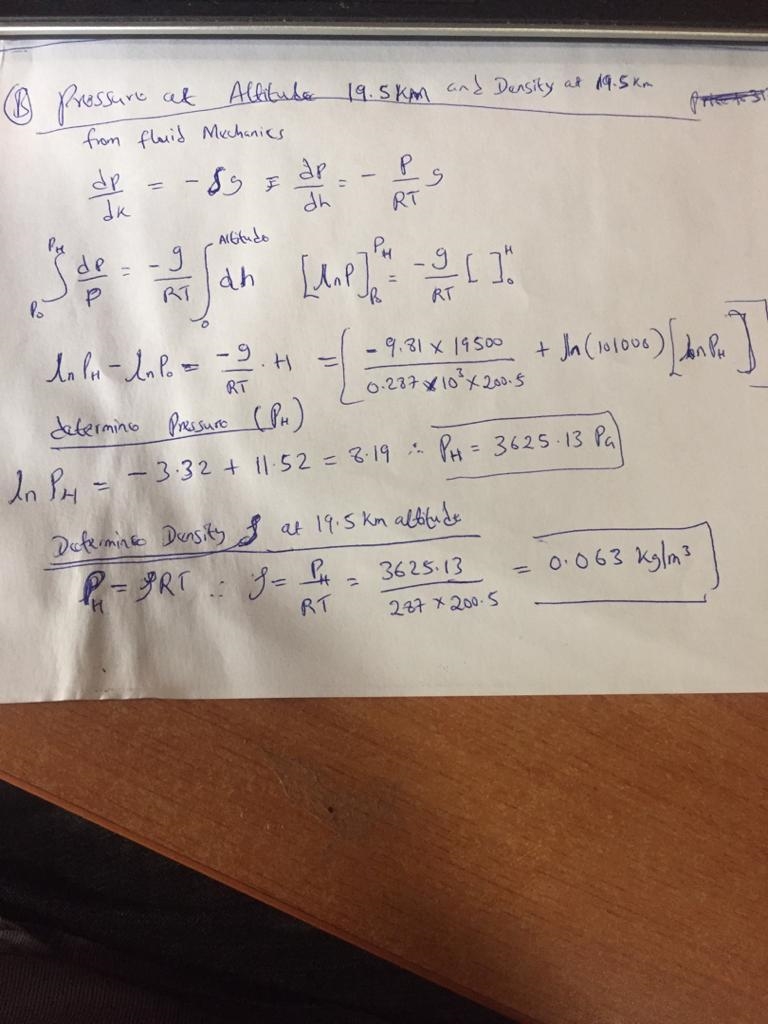 (B) Pressure at Altitude 19.5KM and Density at 19.5Km
from fluid Mechanics
dP/dh = - ρg ≡ dP/dh = - P/RT g
∫_{P₀}^{P_H} dP/P = -g/RT ∫_0^{Altitude} dh [ln P]_{P₀}^{P_H} = -g/RT [ ]_0^H
ln P_H - ln P₀ = -g/RT · H = [ -9.81 × 19500 / 0.287 × 10³ × 200.5 + ln(101000) [ln P_H ]
determine Pressure (P_H)
ln P_H = - 3.32 + 11.52 = 8.19 ∴ P_H = 3625.13 Pa
Determine Density ρ at 19.5 Km altitude
P_H = ρRT ∴ ρ = P_H/RT = 3625.13 / 287 × 200.5 = 0.063 kg/m³